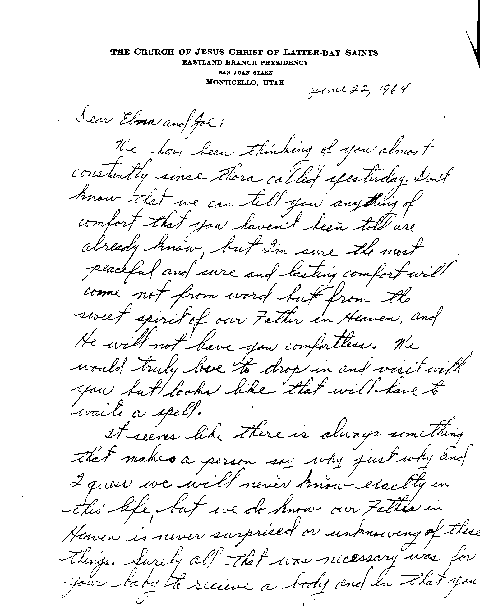 THE CHURCH OF JESUS CHRIST OF LATTER-DAY SAINTS
EASTLAND BRANCH PRESIDENCY
SAN JUAN STAKE
MONTICELLO, UTAH
June 22, 1964
Dear Elma and Joe:
We have been thinking of you almost
constantly since Thora called yesterday. Don't
know that we can tell you anything of
comfort that you haven't been told are
already know, but I'm sure the most
peaceful and sure and lasting comfort will
come not from word but from the
sweet spirit of our Father in Heaven, and
He will not leave you comfortless. We
would truly love to drop in and visit with
you but looks like that will have to
waite a spell.
It seems like there is always something
that makes a person say why just why and
I guess we will never know exactly in
this life, but we do know our Father in
Heaven is never surprised or unknowing of these
things. Surely all that was necessary was for
your baby to recieve a body and in that you